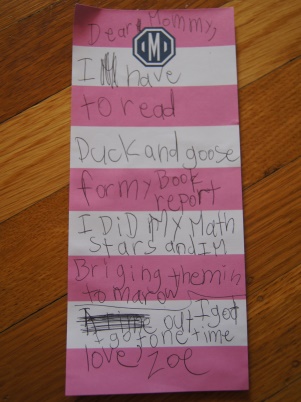 Dear Mommy,
MDM
I have
to read
Duck and goose
for my Book
report
I DiD My Math
Stars and IM
Briging them in
to marow
out I god
I gone fone time
love, Zoe